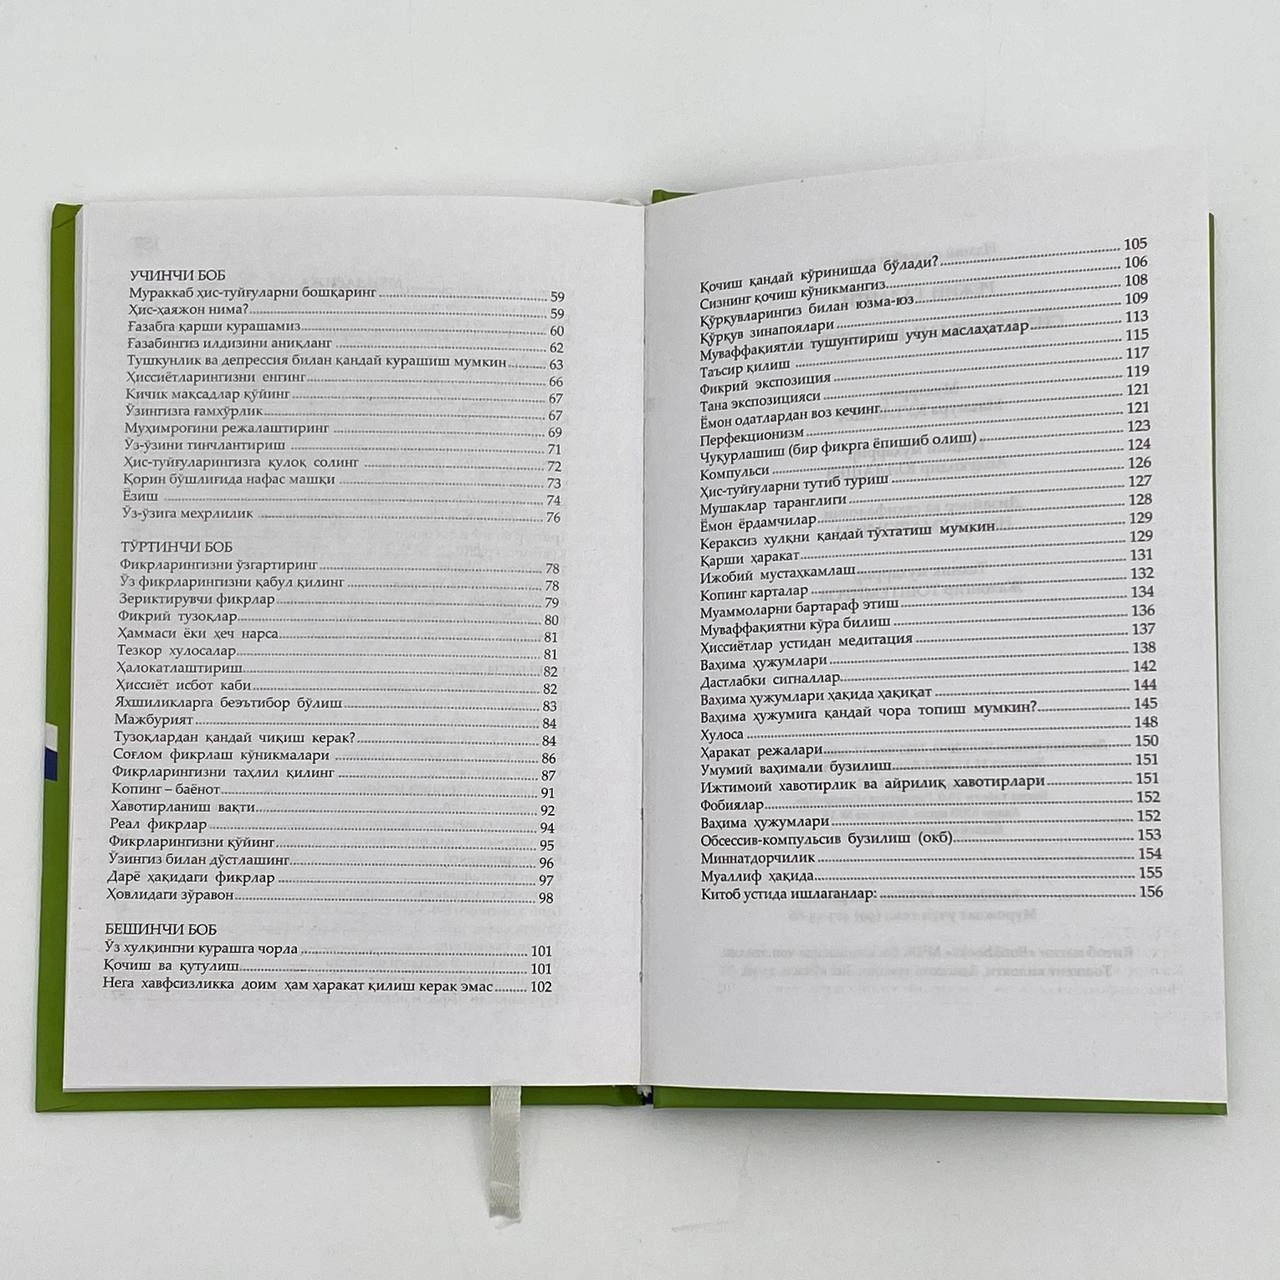 УЧИНЧИ БОБ
Мураккаб ҳис-туйғуларни бошқаринг 59
Ҳис-ҳаяжон нима? 59
Ғазабга қарши курашамиз 60
Ғазабингиз илдизини аниқланг 62
Тушкунлик ва депрессия билан қандай курашиш мумкин 63
Ҳиссиётларингизни енгинг 66
Кичик мақсадлар қўйинг 67
Ўзингизга ғамхўрлик 67
Муҳимроғини режалаштиринг 69
Ўз-ўзини тинчлантириш 71
Ҳис-туйғуларингизга қулоқ солинг 72
Қорин бўшлиғида нафас машқи 73
Ёзиш 74
Ўз-ўзига меҳрлилик 76
ТЎРТИНЧИ БОБ
Фикрларингизни ўзгартиринг 78
Ўз фикрларингизни қабул қилинг 78
Зериктирувчи фикрлар 79
Фикрий тузоқлар 80
Ҳаммаси ёки ҳеч нарса 81
Тезкор хулосалар 81
Ҳалокатлаштириш 82
Ҳиссиёт исбот каби 82
Яхшиликларга беэътибор бўлиш 83
Мажбурият 84
Тузоқлардан қандай чиқиш керак? 84
Соғлом фикрлаш кўникмалари 86
Фикрларингизни таҳлил қилинг 87
Копинг – баёнот 91
Хавотирланиш вақти 92
Реал фикрлар 94
Фикрларингизни қўйинг 95
Ўзингиз билан дўстлашинг 96
Дарё ҳақидаги фикрлар 97
Ҳовлидаги зўравон 98
БЕШИНЧИ БОБ
Ўз хулқингни курашга чорла 101
Қочиш ва қутулиш 101
Нега хавфсизликка доим ҳам ҳаракат қилиш керак эмас 102
Қочиш қандай кўринишда бўлади? 105
Сизнинг қочиш кўникмангиз 106
Қўрқувларингиз билан юзма-юз 108
Қўрқув зинапоялари 109
Муваффақиятли тушунтириш учун маслаҳатлар 113
Таъсир қилиш 115
Фикрий экспозиция 117
Тана экспозицияси 119
Ёмон одатлардан воз кечинг 121
Перфекционизм 121
Чуқурлашиш (бир фикрга ёпишиб олиш) 123
Компульси 124
Ҳис-туйғуларни тутиб туриш 126
Мушаклар таранглиги 127
Ёмон ёрдамчилар 128
Кераксиз хулқни қандай тўхтатиш мумкин 129
Қарши ҳаракат 129
Ижобий мустаҳкамлаш 131
Копинг карталар 132
Муаммоларни бартараф этиш 134
Муваффақиятни кўра билиш 136
Ҳиссиётлар устидан медитация 137
Ваҳима ҳужумлари 138
Дастлабки сигналлар 142
Ваҳима ҳужумлари ҳақида ҳақиқат 144
Ваҳима ҳужумига қандай чора топиш мумкин? 145
Хулоса 148
Ҳаракат режалари 150
Умумий ваҳимали бузилиш 151
Ижтимоий хавотирлик ва айрилиқ хавотирлари 151
Фобиялар 152
Ваҳима ҳужумлари 152
Обсессив-компульсив бузилиш (окб) 153
Миннатдорчилик 154
Муаллиф ҳақида 155
Китоб устида ишлаганлар: 156